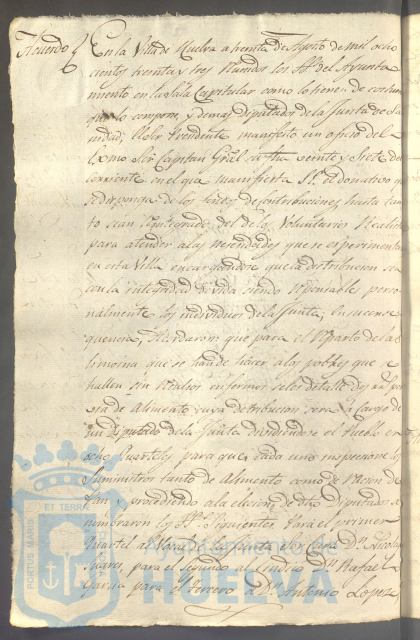 Acuerdo En la Villa de Huelva a treinta de Agosto de mil ocho
cientos treinta y tres reunidos los Sres. del Ayunta
miento en la Sala Capitular como lo tienen de costum
lo compone, y demas Diputados de la Junta de Sa
nidad, el Sor. Precidente manifesto un oficio del
Exmo Sor Capitan Gral su fha veinte y siete del
corriente en el que manifiesta S.E.
de los fondos de contribuciones, hasta tan
to sean reintegrados del de los Voluntarios Realistas
para atender a las necesidades que se esperimentan
en esta Villa encargandose que la distribucion sea
con la integridad devida siendo responsable perso
nalmente los individuos de la Junta; En su conse
quencia, Acordaron que para el reparto de la
limosna que se ha de hacer a los pobres que se
hallen sin recursos enfermos se les detalle
de Alimento cuya distribucion sera a cargo de
un Diputado de la Junta dividiendose el Pueblo en
ocho Cuarteles para que cada uno inspeccione los
Suministros tanto de Alimento como de racion de
Pan, y procediendo a la eleccion de dhos Diputados
nombraron los Sres. Siguientes Para el primer
Cuartel al Vocal de la Junta el Sor Cura Dn. Nicolas
Suares, para el Segundo al Sindico Dn. Rafael
Garcia para el tercero a Dn. Antonio Lopez
PORTUS MARIS ET TERRAE CUSTODIA
Ayuntamiento de
HUELVA